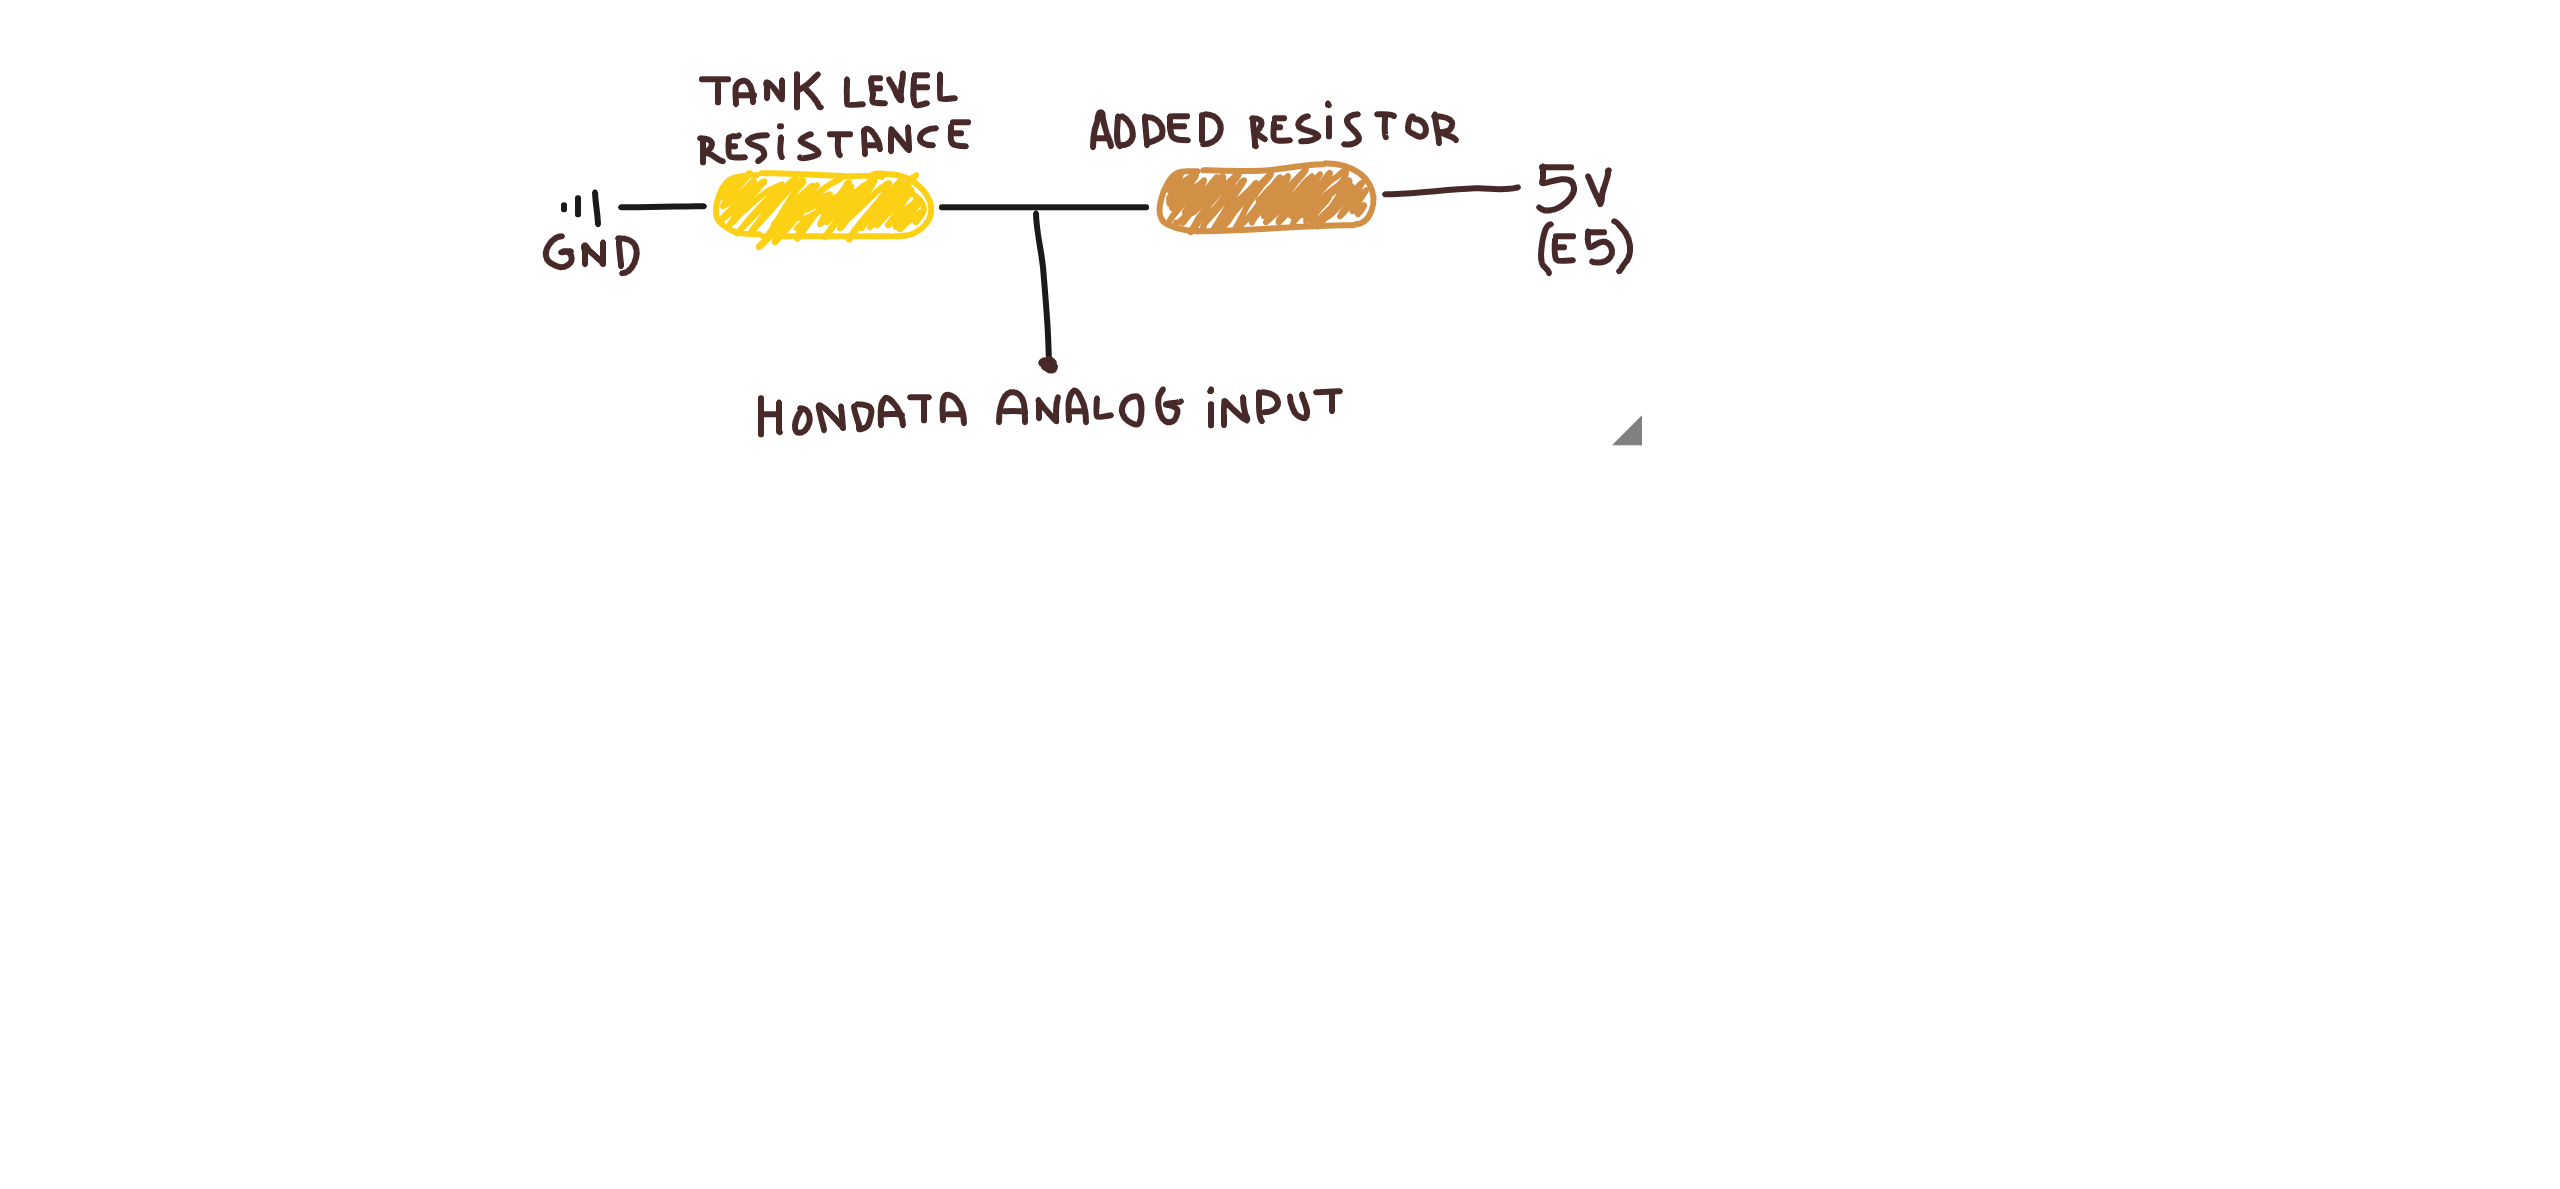 TANK LEVEL
RESiSTANCE
ADDED RESiSTOR
GND
5V
(E5)
HONDATA ANALOG iNPUT